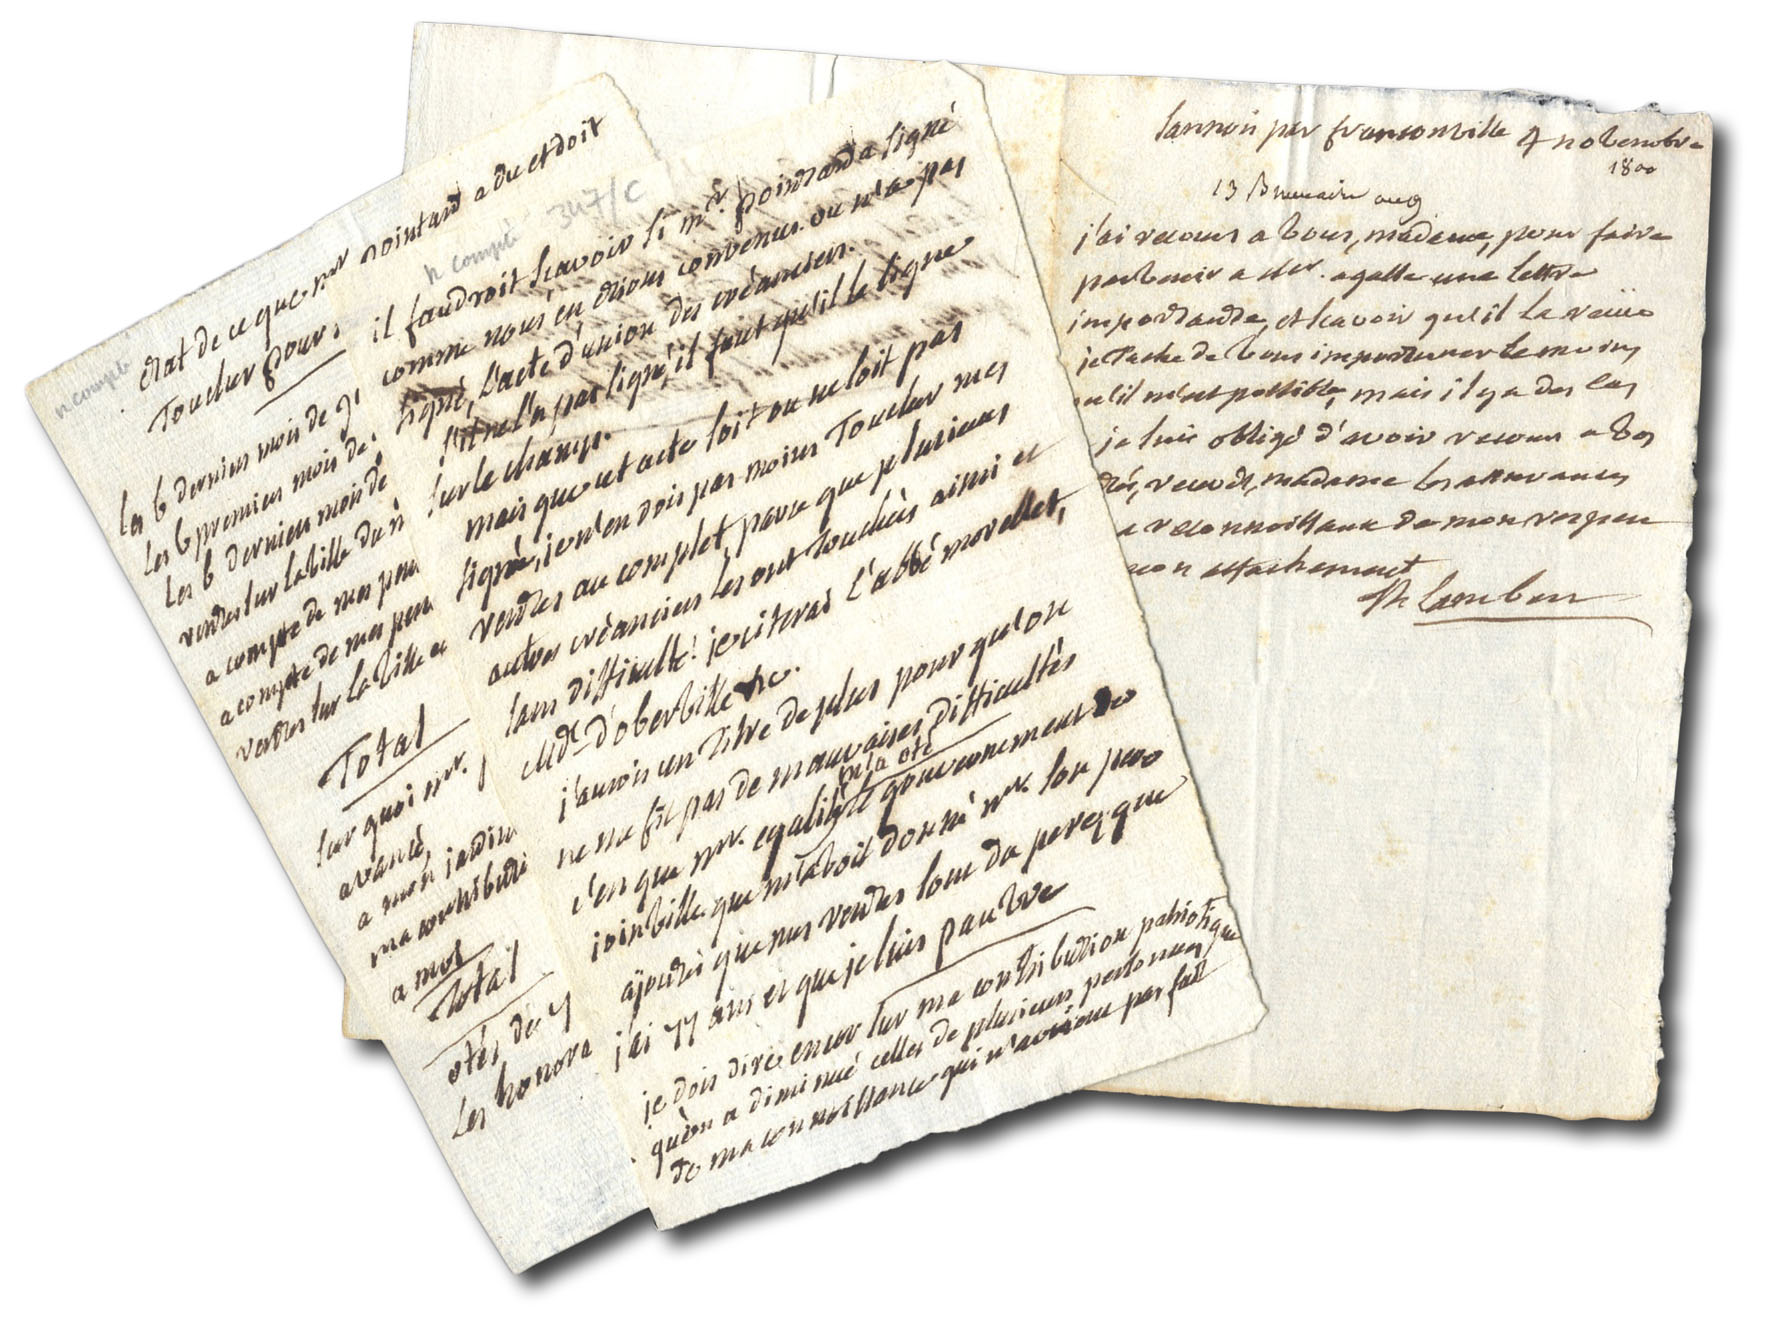 etat de ce que mr pointard a du et doit
toucher pour
n compte
Les 6 derniers mois de
Les 6 premiers mois de
Les 6 derniers mois de
rentes sur la ville du
a compte de mes pen
a compte de mes pen
rentes sur la ville en
Total
sur quoi mr.
avancé,
a mon jardin
ma contributi
a moi
Total
otés de
Les honora
n compte 347/C
il faudroit scavoir si mr. pointard a signé
comme nous en etions convenus ou n'a pas
signé, l'acte d'union des créanciers.
s'il ne l'a pas signé, il faut qu'il le signe
sur le champ.
mais que cet acte soit ou ne soit pas
signé, je n'en dois pas moins toucher mes
rentes au complet, parce que plusieurs
autres créanciers les ont touchées ainsi et
sans difficulté: je citerai l'abbé morellet,
Mde. d'oberville &c.
j'aurois un titre de plus pour qu'on
ne me fit pas de mauvaises difficultés
c'es que mr. egalité m'a oté le gouvernement de
joinville que m'avoit donné mr. son pere
ajoutés que mes rentes sont du pere, que
j'ai 77 ans et que je suis pauvre
je dois dire encor sur ma contribution patriotique
qu'on a diminué celles de plusieurs personnes
de ma connoissance qui n'avoient pas fait
Sannois par franconville 4 novembre
1800
13 Brumaire an 9
j'ai recours a vous, madame, pour faire
parvenir a mr. agasse une lettre
importante, et scavoir qu'il la reçue
je tache de vous importuner le moins
qu'il m'est possible, mais il y a des cas
je suis obligé d'avoir recours a vos
tés, recevés, madame les assurances
a reconnoissance de mon respect
mon attachement
St Lambert